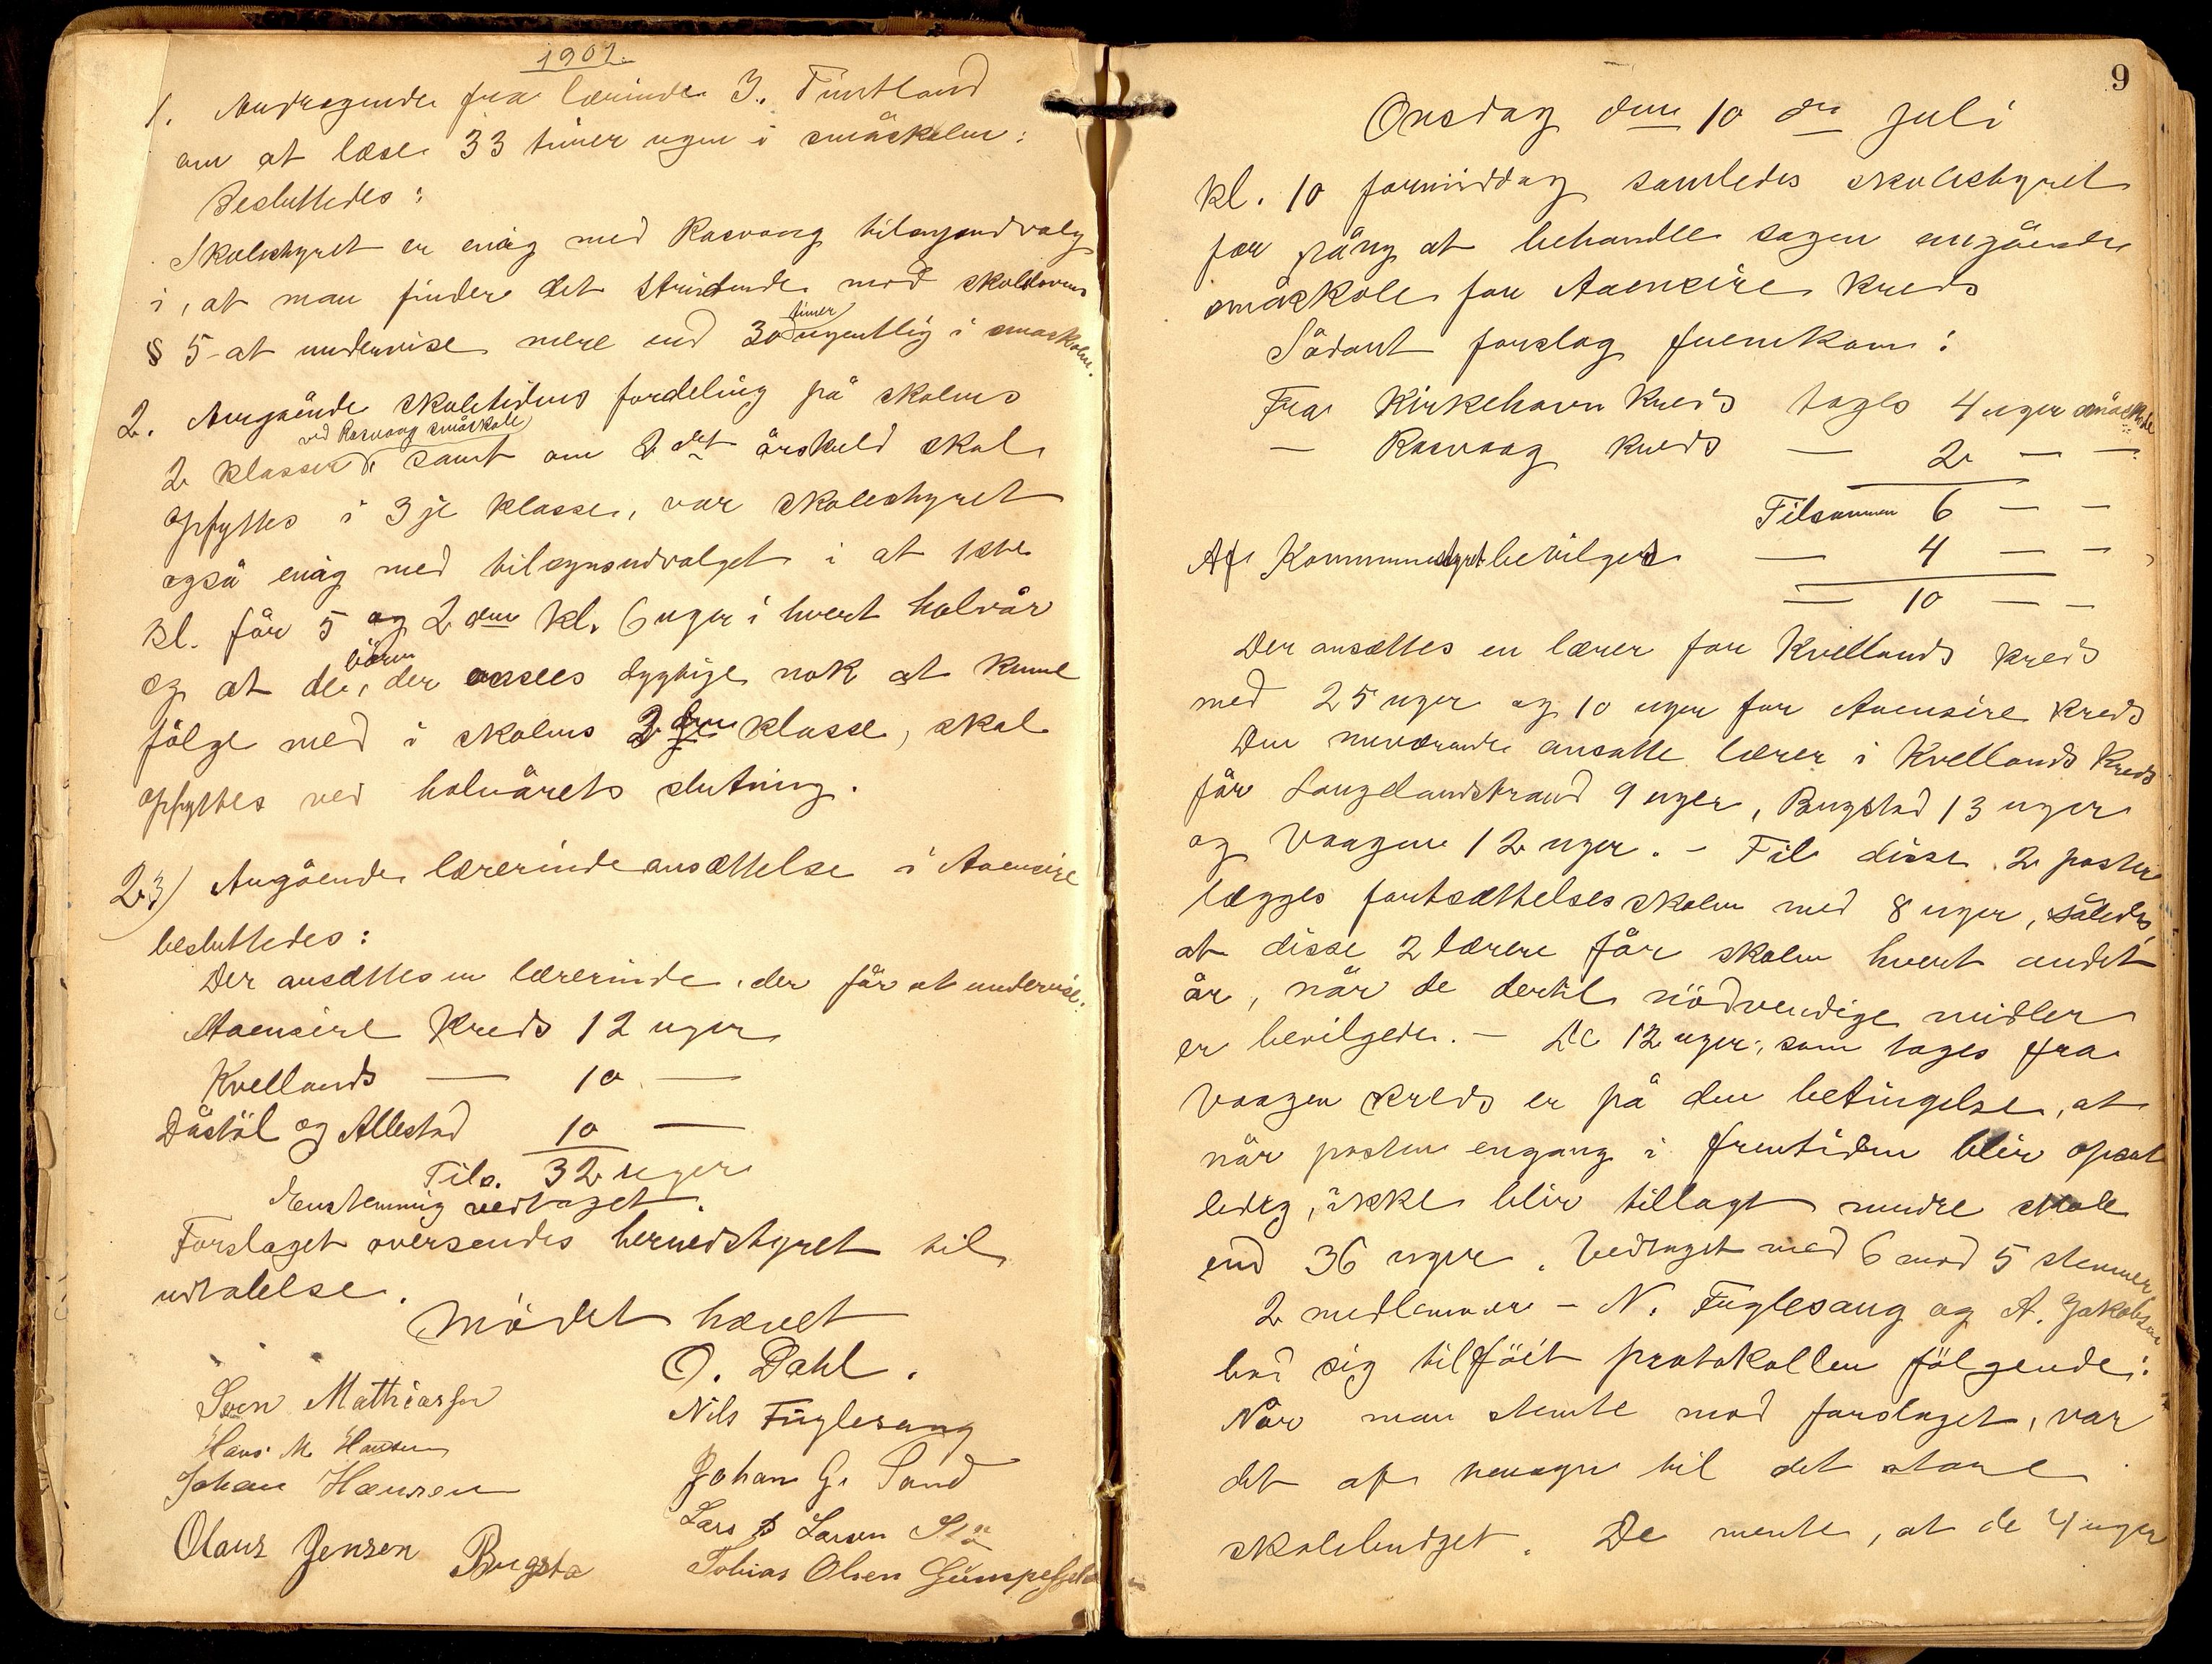 1907.
1. Andragende fra lærinde J. Tuntland
om at læse 33 timer ugen i småskolen:
Besluttedes:
Skolestyret er enig med Rasvaag tilsynsudvalg
i, at man finder det stridende mod skolelovens
§ 5 at undervise mere end 30 timer ugentlig i smaskolen.
2. Angående skoletidens fordeling på skolens
2 klasser ved Rasvaag småskole, samt om 2det årskuld skal
opfyttes i 3je klasse, var skolestyret
også enig med tilsynsudvalget i at 1ste
kl. får 5 og 2den kl. 6 uger i hvert halvår
og at de börn, der ansees dygtige nok at kunne
fölge med i skolens klasse, skal
opfyttes ved halvårets slutning.
3) Angående lærerindeansættelse i Aaensire
besluttedes:
Der ansættes en lærerinde, der får at undervise:
Aaensire Kreds 12 uger
Kvellands — 10 —
Dåstöl og Allestad 10 —
Tils. 32 uger
Enstemmig vedtaget.
Forslaget oversendes herredstyret til
udtalelse.
Mödet hævet
O. Dahl.
Sven Mathiassen
Nils Fuglesang
Hans M. Hansen
Johan G. Sand
Johan Hansen
Lars Larsen
Olaus Jensen Bugsta
Tobias Olsen
9
Onsdag den 10de Juli
kl. 10 formiddag samledes skolestyret
for påny at behandle sagen angående
småskole for Aaensire Kreds
Sådant forslag fremkom:
Fra Kirkehavn Kreds tages 4 uger småskole
— Rasvaag kreds — 2 — —
Tilsammen 6 — —
Af Kommunestyret bevilges — 4 — —
— 10 — —
Der ansættes en lærer for Kvellands kreds
med 25 uger og 10 uger for Aaensire kreds
Den nuværande ansatte lærer i Kvellands Kreds
får Laugelandstrand 9 uger, Bugstad 13 uger
og Vaagen 12 uger. - Til disse 2 poster
lægges fortsættelsesskolen med 8 uger, således,
at disse 2 lærere får skolen hvert andet
år, når de dertil nödvendige midler
er bevilgede. - De 12 uger, som tages fra
Vaagen kreds er på den betingelse, at
når posten engang i fremtiden blir opsat
ledig, ikke blir tillagt mindre skole
end 36 uger. Vedtaget med 6 mod 5 stemmer
2 medlemmer - N. Fuglesang og A. Jakobsen
bad sig tilföiet protokollen fölgende:
Når man stemte mod forslaget, var
det af hensyn til det store
skolebudget. De mente, at de 4 uger